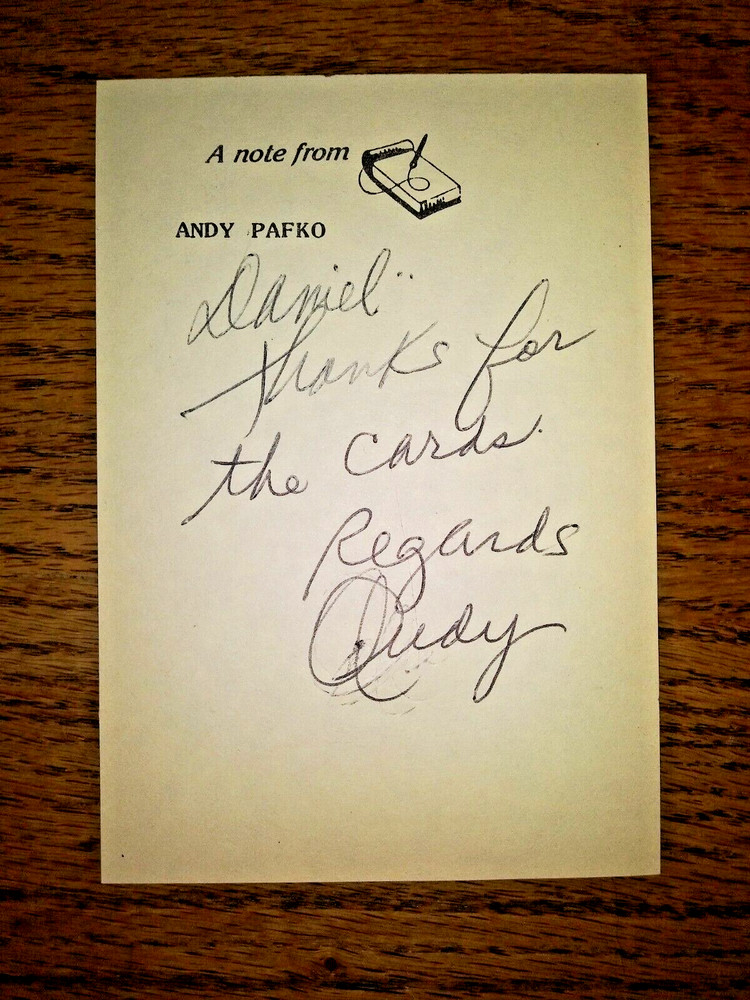 A note from
ANDY PAFKO
Daniel..
Thanks for
the cards.
Regards
Andy